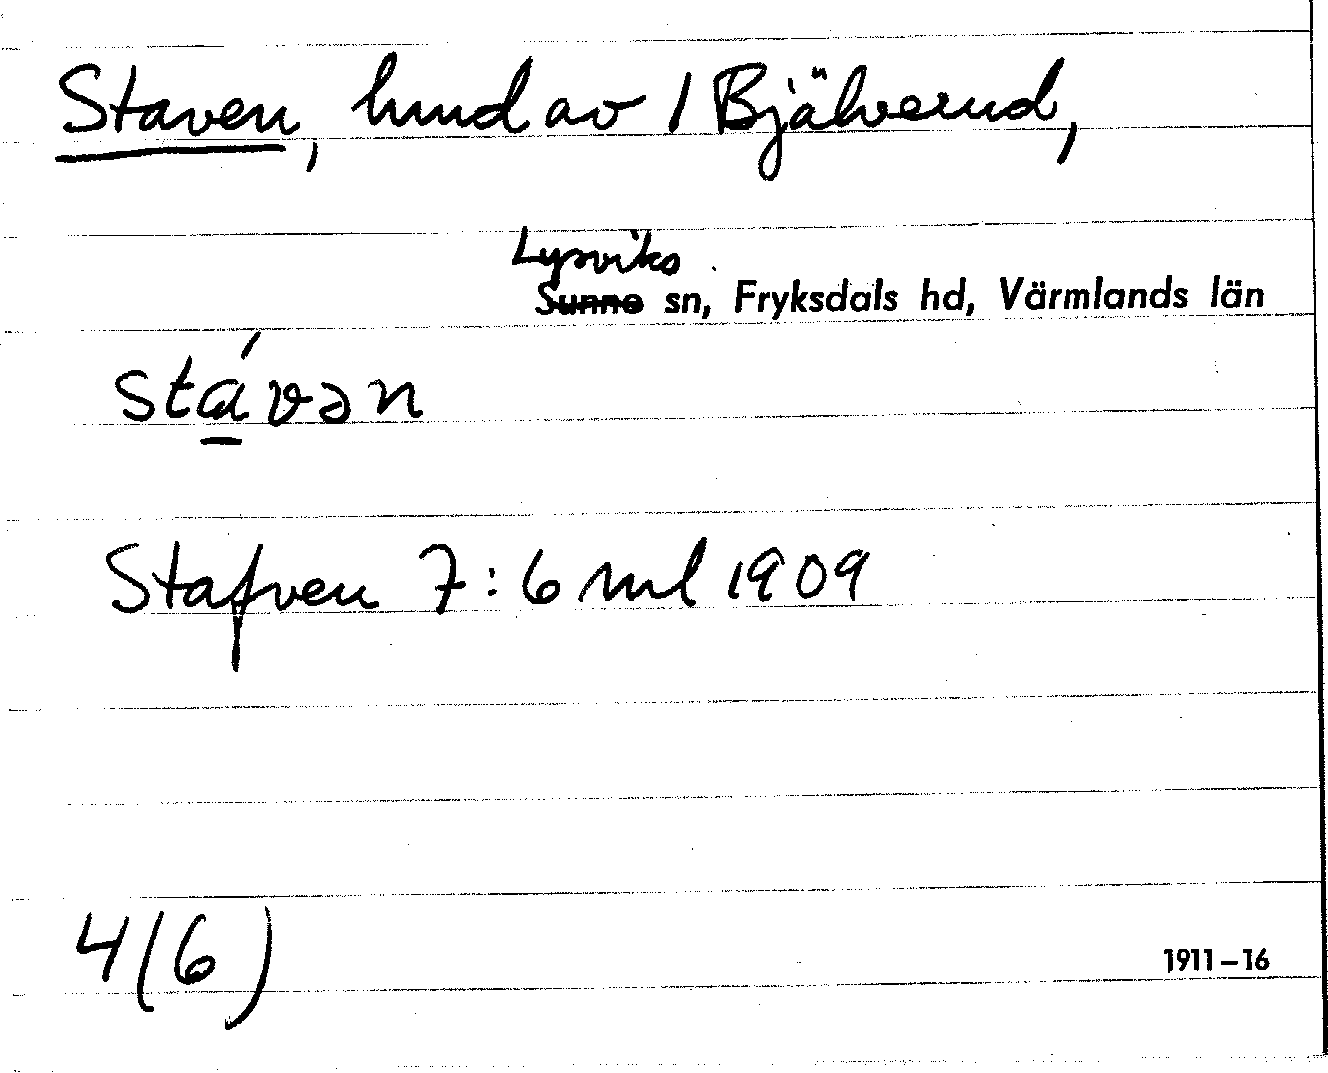 Staven, hmd av 1 Bjälverud,
Lysviks
Sunne sn, Fryksdals hd, Värmlands län
stávən
Stafven 7:6 ml 1909
4(6)
1911–16